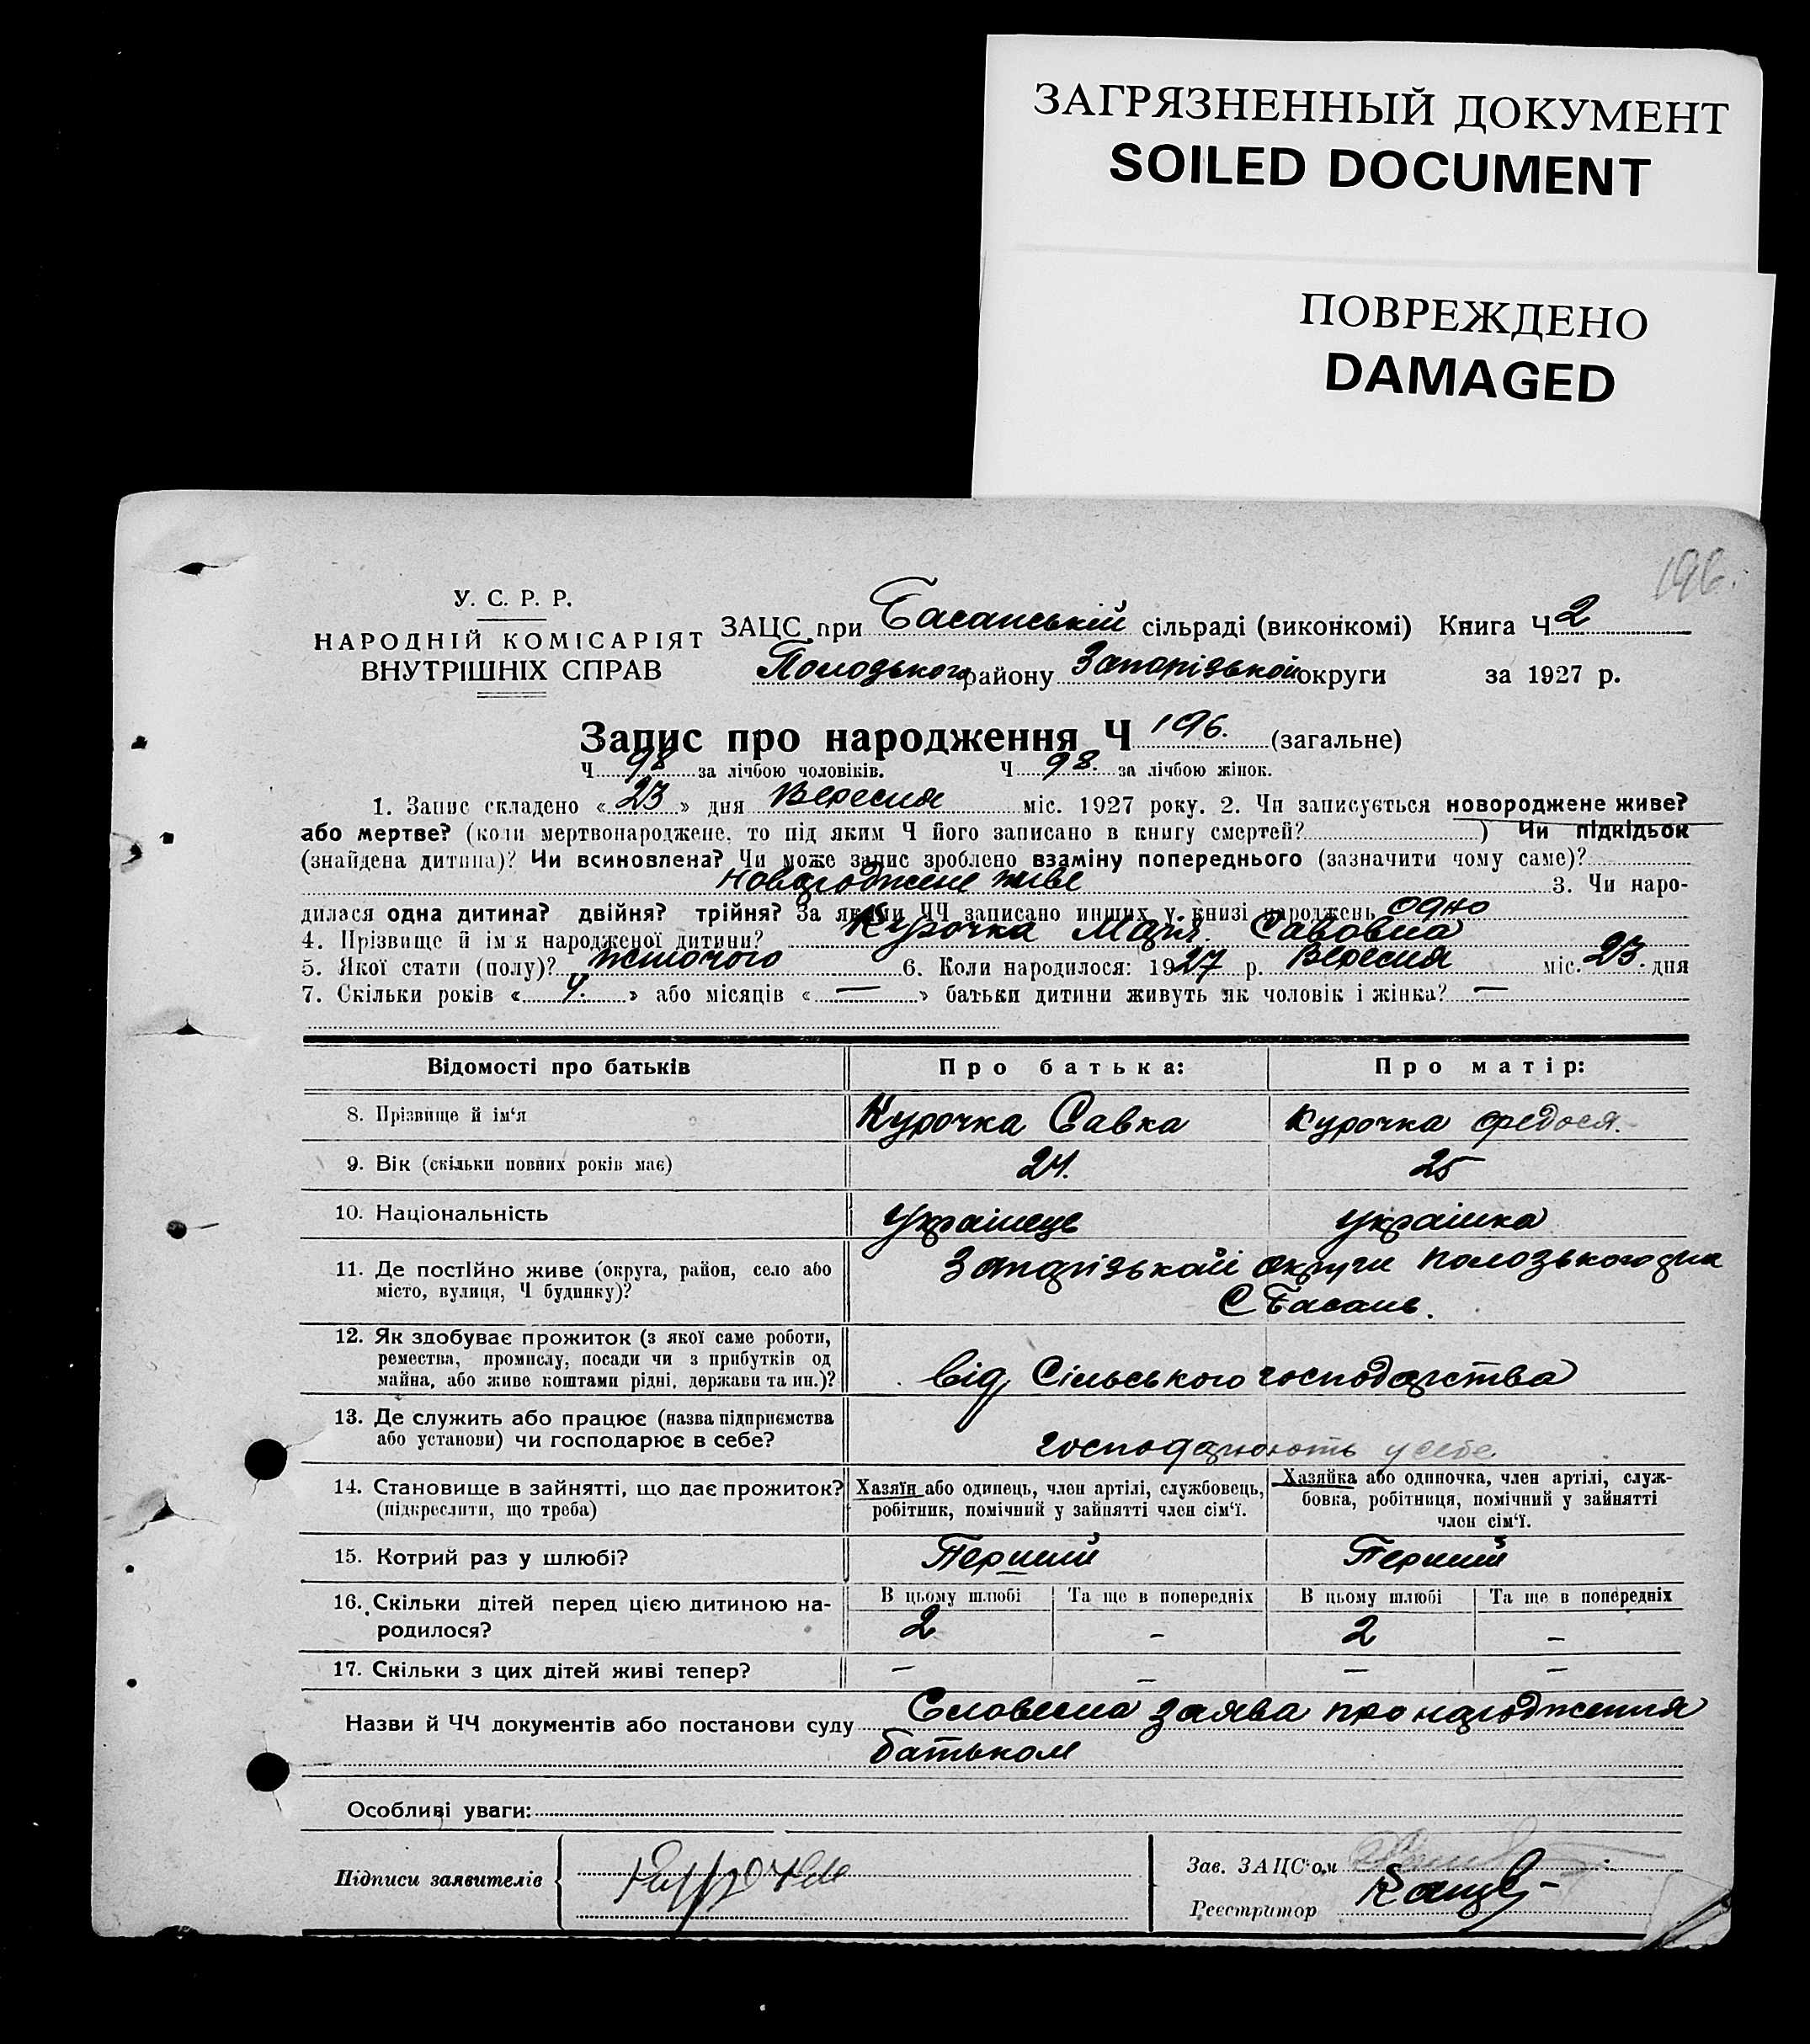 ЗАГРЯЗНЕННЫЙ ДОКУМЕНТ
SOILED DOCUMENT
ПОВРЕЖДЕНО
DAMAGED
196.
У. С. Р. Р.
НАРОДНІЙ КОМІСАРІЯТ
ВНУТРІШНІХ СПРАВ
ЗАЦС при Басанській сільраді (виконкомі) Книга Ч 2
Пологського району Запорізької округи за 1927 р.
Запис про народження Ч 196. (загальне)
Ч 98 за лічбою чоловіків. Ч 98. за лічбою жінок.
1. Запис складено « 23 » дня Вересня міс. 1927 року. 2. Чи записується новороджене живе?
або мертве? (коли мертвонароджене, то під яким Ч його записано в книгу смертей? ) Чи підкідьок
(знайдена дитина)? Чи всиновлена? Чи може запис зроблено взаміну попереднього (зазначити чому саме)?
новороджене живе 3. Чи наро-
дилася одна дитина? двійня? трійня? За якими ЧЧ записано инших у книзі народжень одно
4. Прізвище й ім'я народженої дитини? Курочка Марія Савовна
5. Якої стати (полу)? жіночого 6. Коли народилося: 1927 р. Вересня міс. 23. дня
7. Скільки років « 4. » або місяців « — » батьки дитини живуть як чоловік і жінка? —
Відомості про батьків Про батька: Про матір:
8. Прізвище й ім'я Курочка Савка Курочка Федося.
9. Вік (скільки повних років має) 24. 25
10. Національність Українець Українка
11. Де постійно живе (округа, район, село або Запорізькой округи Пологського р-на
місто, вулиця, Ч будинку)? С Басань.
12. Як здобуває прожиток (з якої саме роботи,
ремества, промислу, посади чи з прибутків од
майна, або живе коштами рідні, держави та ин.)? від Сільського господарства
13. Де служить або працює (назва підприємства
або установи) чи господарює в себе? господарюють у себе
14. Становище в зайнятті, що дає прожиток? Хазяїн або одинець, член артілі, службовець, Хазяйка або одиночка, член артілі, служ-
(підкреслити, що треба) робітник, помічний у зайнятті член сім'ї. бовка, робітниця, помічний у зайнятті
член сім'ї.
15. Котрий раз у шлюбі? Перший Перший
16. Скільки дітей перед цією дитиною на- В цьому шлюбі Та ще в попередніх В цьому шлюбі Та ще в попередніх
родилося? 2 – 2 –
17. Скільки з цих дітей живі тепер? – – – –
Назви й ЧЧ документів або постанови суду Словесна заява про народження
батьком
Особливі уваги:
Підписи заявителів Курочка
Зав. ЗАЦС'ом
Реєстратор